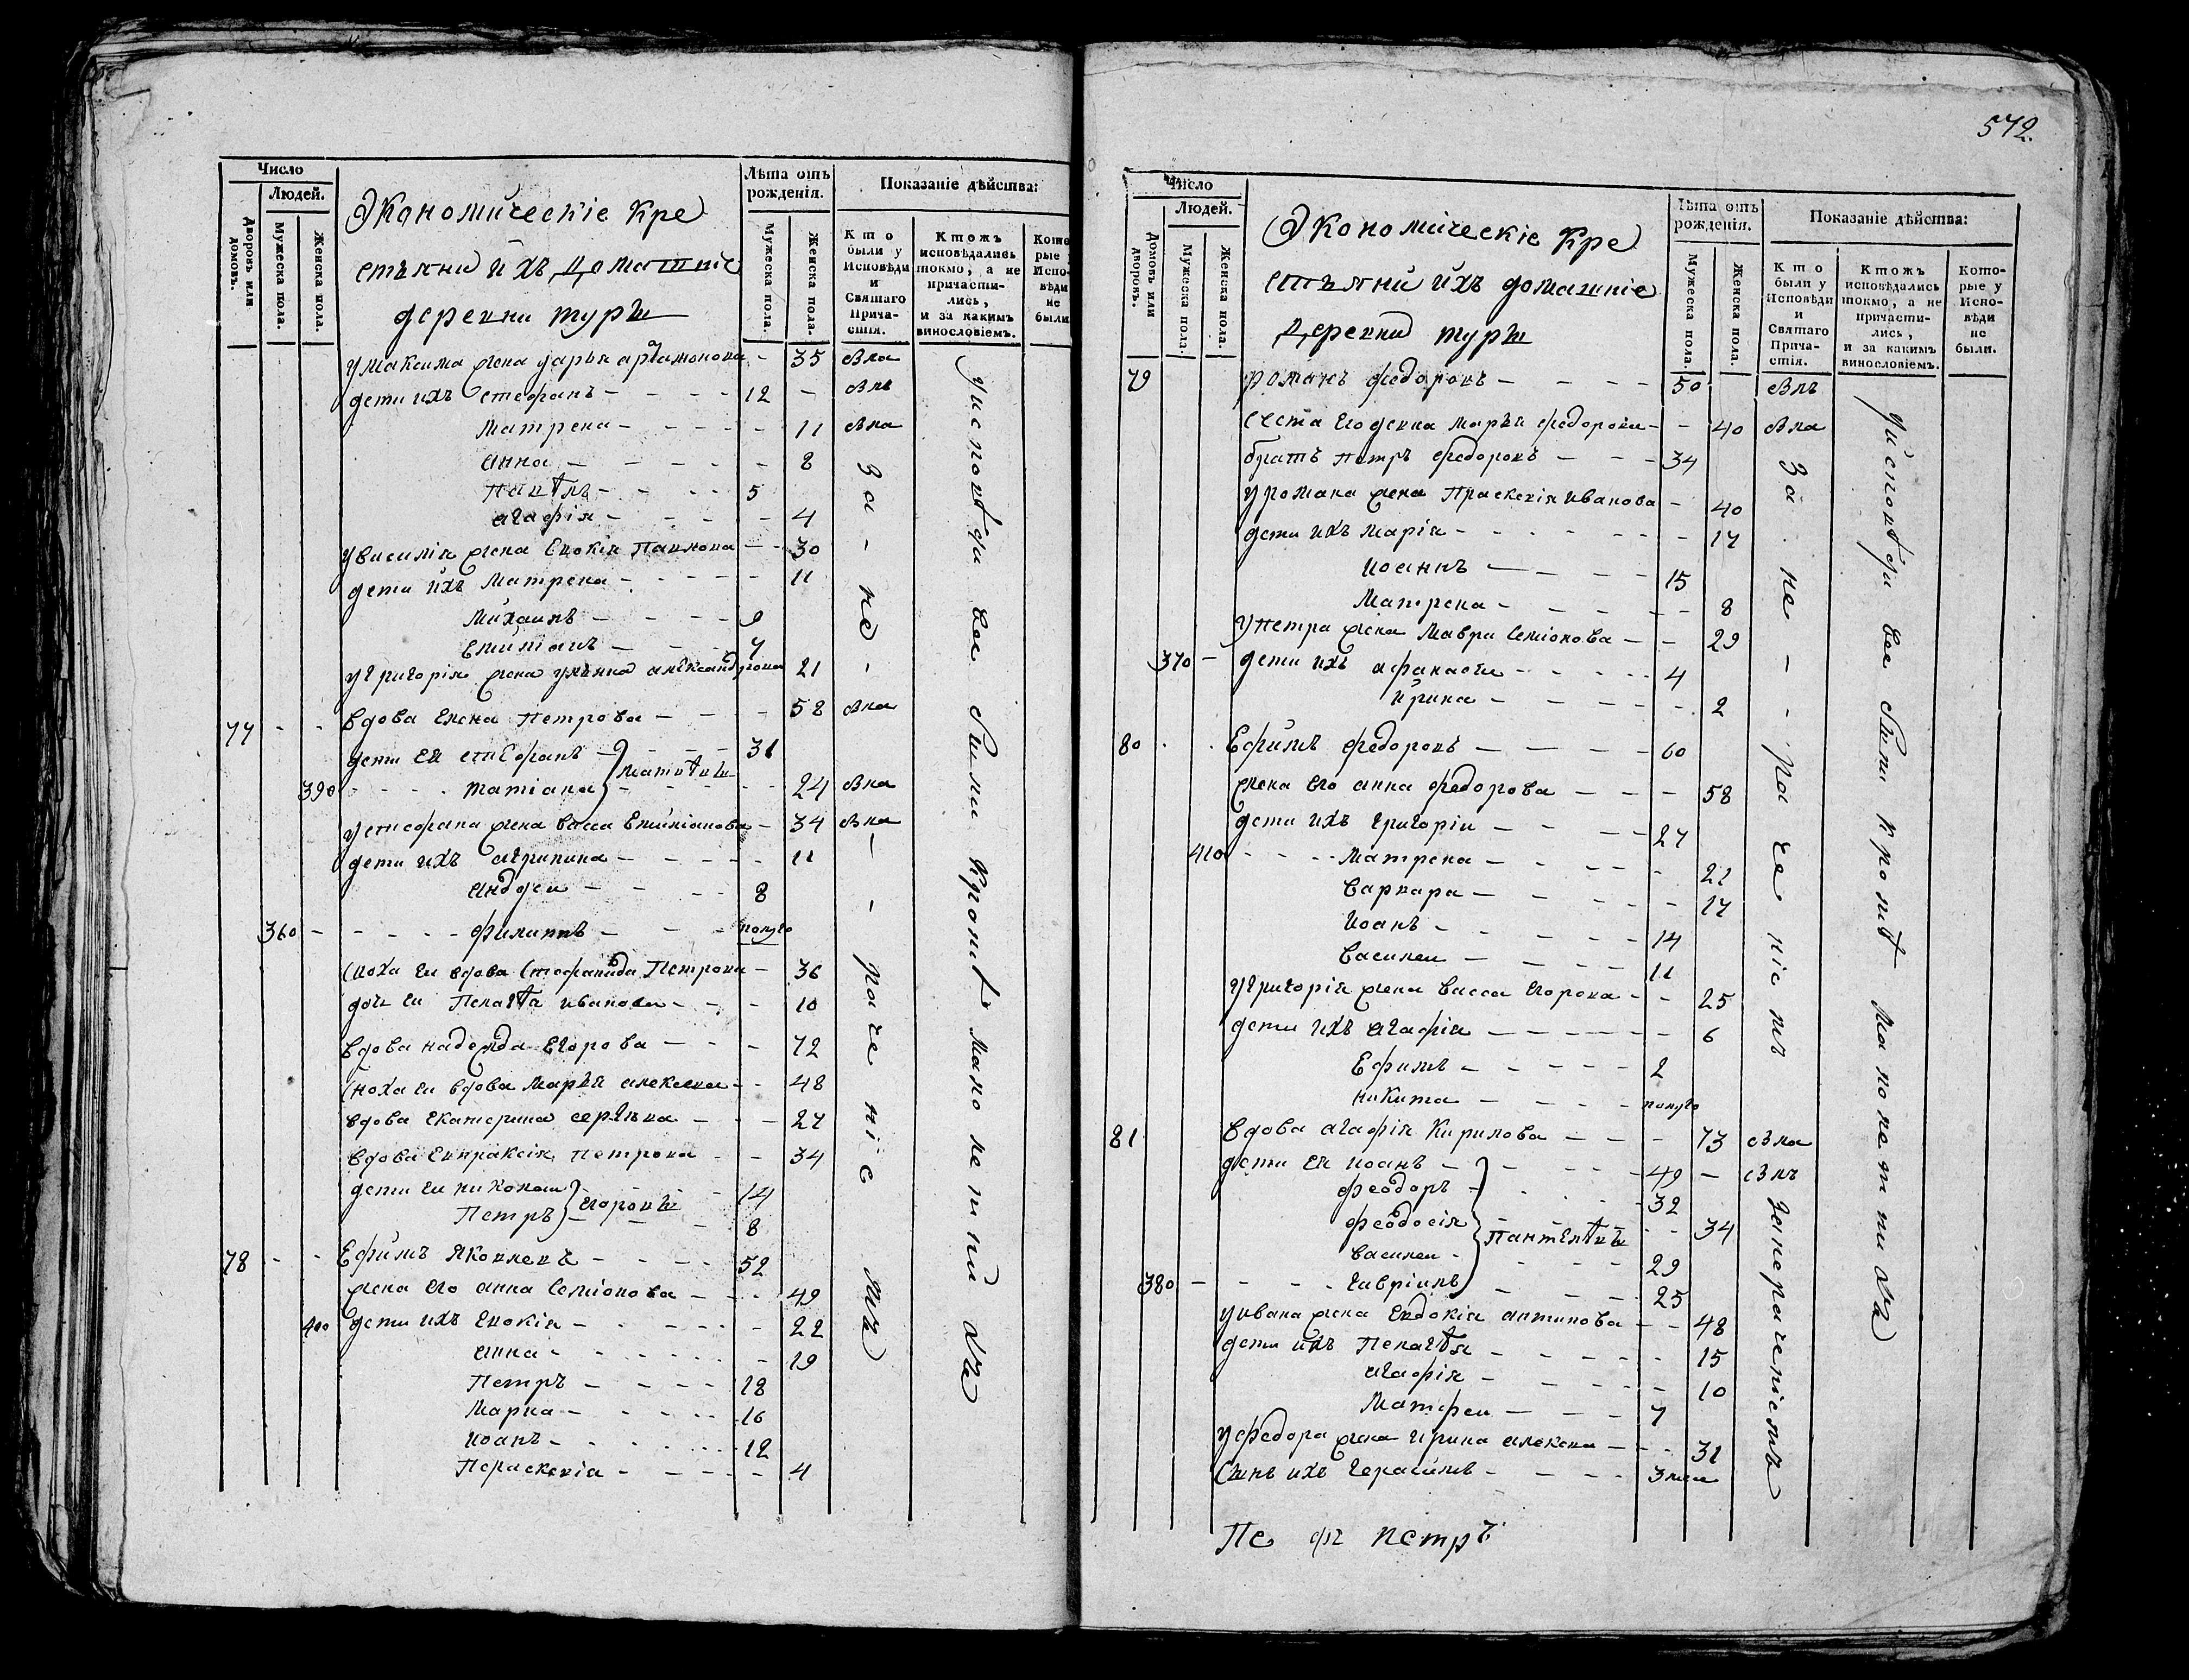 Число
Людей.
Дворовъ или домовъ.
Мужеска пола.
Женска пола.
Экономическіе кре
стьяни ихъ домашніе
деревни туры
Лѣта отъ рожденія.
Мужеска пола.
Женска пола.
Показаніе дѣйства:
Кто были у Исповѣди и Святаго Причастія.
Ктожъ исповѣдались токмо, а не причастились, и за какимъ винословіемъ.
Которые у Исповѣди не были
у максима жена дарья артамонова - 35 былa
дети ихъ стефанъ - 12 - былъ
матрена - 11 была
анна - 8
Павѣлъ - 5
агафія - 4
у василія жена Павлова - 30
дети ихъ матрена - 11
михаилъ - 9
- 7
у григорія жена улянна александрова 21
77 вдова елена петрова - 58 была
дети ея стефанъ - 31
390 татіана - 24 была
у стефана жена васса - 34 была
дети ихъ агрипина - 11
андреи - 8
360 филиппъ - полуго
сноха ея вдова стефанида Петрова - 36
дочь ея Пелагѣя иванова - 10
вдова надежда егорова - 72
сноха ея вдова марья алексеева - 48
вдова екатерина сергѣева - 27
вдова евпраксія петрова - 34
дети ея николаи - 14
Петръ егоровы - 8
78 Ефимъ яковлевъ - 52
жена его анна семіонова - 49
400 дети ихъ - 22
анна - 19
Петръ - 18
марка - 16
иоанъ - 12
Параскевія - 4
за не раченіемъ
у исповѣди все были кромѣ малолетнихъ
572
Число
Людей.
Домовъ или дворовъ.
Мужеска пола.
Женска пола.
Экономическіе кре
стьяни ихъ домашніе
деревни туры
Лѣта отъ рожденія.
Мужеска пола.
Женска пола.
Показаніе дѣйства:
Кто были у Исповѣди и Святаго Причастія.
Ктожъ исповѣдались токмо, а не причастились, и за какимъ винословіемъ.
Которые у Исповѣди не были.
79 романъ федоровъ - 50 былъ
сестра его девка марья федорова - 40 была
братъ петръ федоровъ - 34
у романа жена Праскевія иванова - 40
дети ихъ марія - 17
иоаннъ - 15
матрена - 8
у петра жена мавра семіонова - 29
370 дети ихъ афанасеи - 4
ирина - 2
80 Ефимъ федоровъ - 60
жена его анна федорова - 58
дети ихъ григоріи - 27
410 матрена - 22
варвара - 17
иоанъ - 14
василеи - 11
у григорія жена васса егорова - 25
дети ихъ агафія - 6
Ефимъ - 2
никита - полуго
81 вдова агафія кирилова - 73 была
дети ея иоанъ - 49 - былъ
феодоръ - 32
феодосія - Пантелѣевы 34
василеи - 29
380 гавріилъ - 25
у ивана жена евдокія антипова - 48
дети ихъ Пелагѣя - 15
агафія - 10
матфеи - 7
у федора жена ирина алексеева - 31
сынъ ихъ герасимъ -
за не раченіемъ
за нераченіемъ
у исповѣди все были кромѣ малолетнихъ
петръ